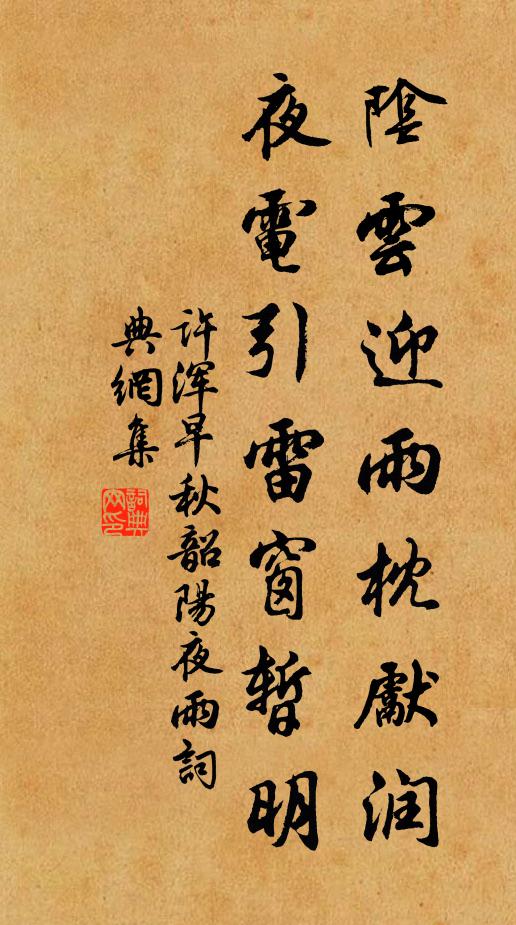 陰雲迎雨枕獻润
夜電引雷窗暫明
許渾早秋韶陽夜雨詞
典網集
詞典
网印